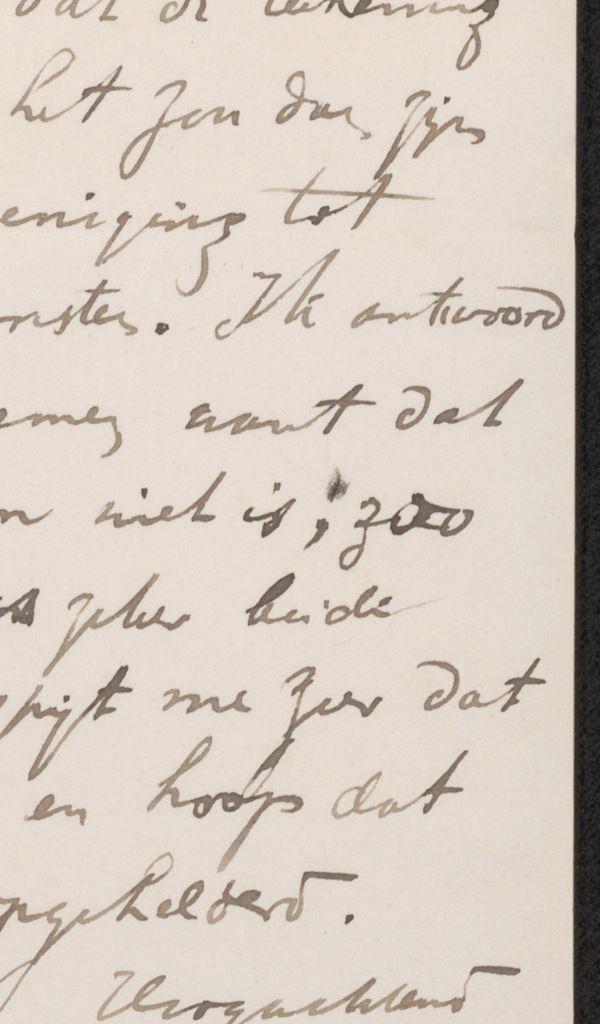 dat de tekening
het zou dan zijn
eniging tot
nsten. Ik antwoord
want dat
niet is, zoo
zeker beide
spijt me zeer dat
en hoop dat
opgehelderd.
Hoogachtend